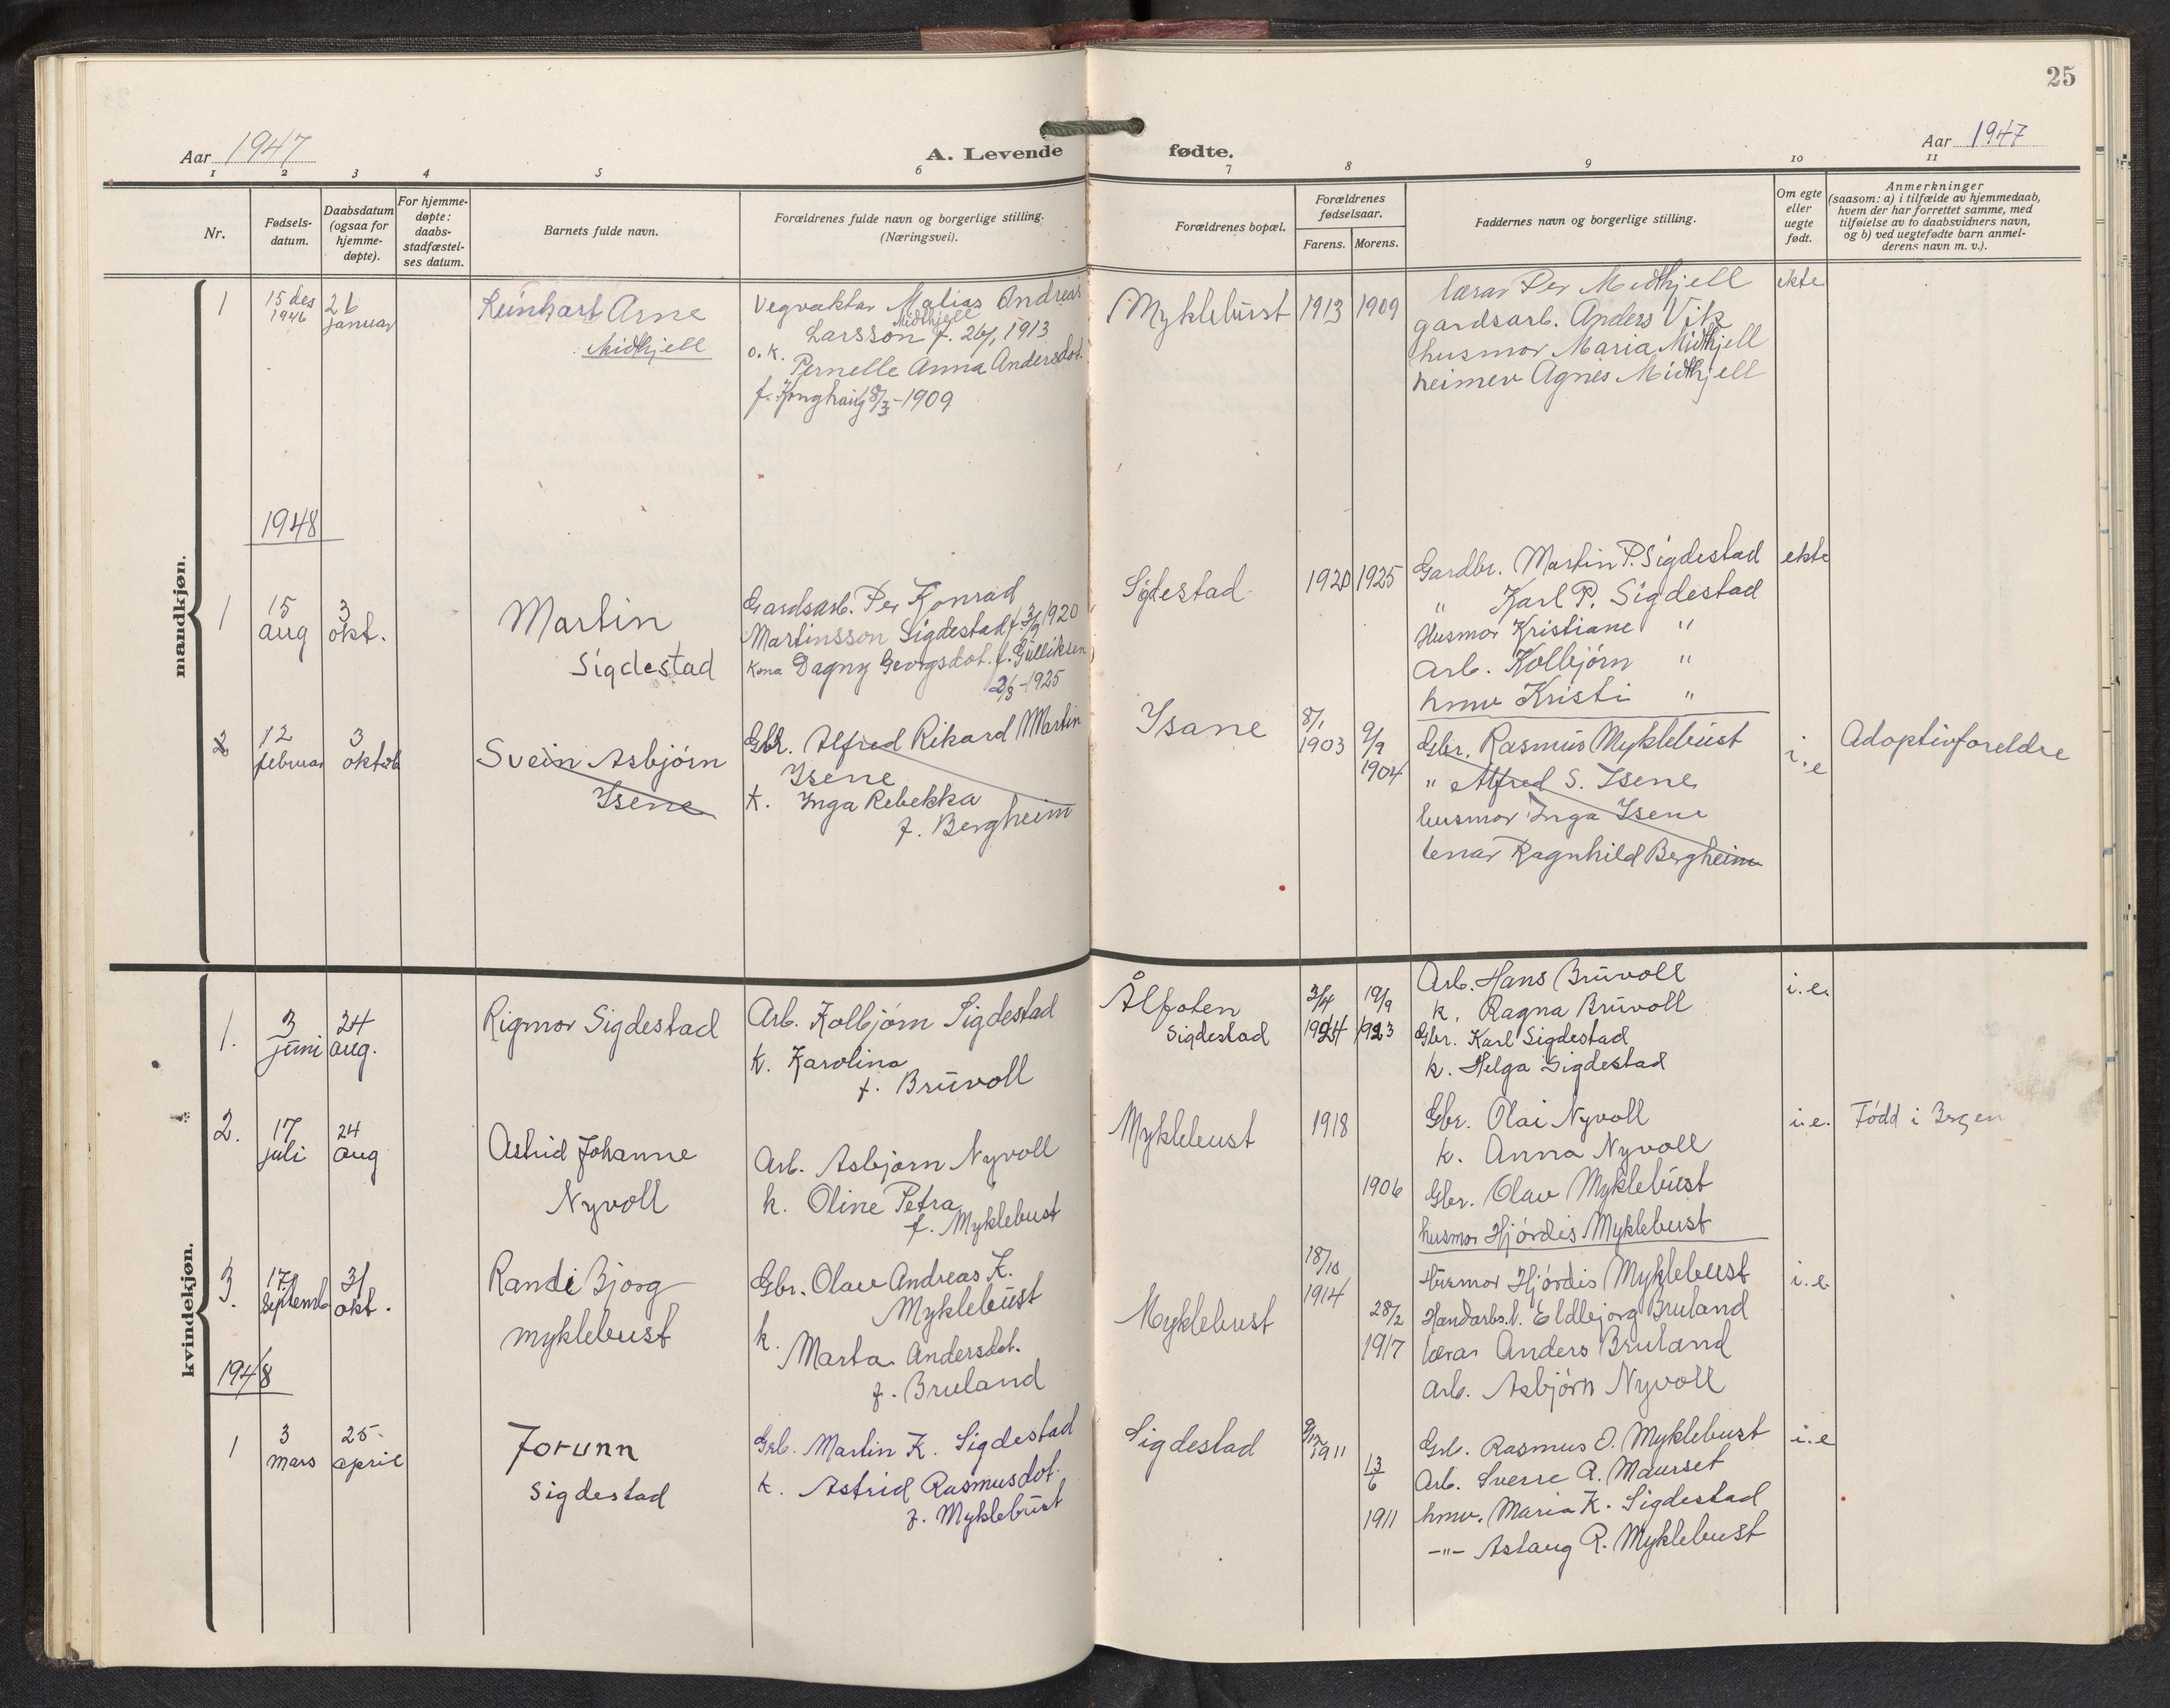 25
Aar 1947
A. Levende
fødte.
Aar 1947
1 2 3 4 5 6 7 8 9 10 11
Nr.
Fødsels-
datum.
Daabsdatum
(ogsaa for
hjemme-
døpte).
For hjemme-
døpte:
daabs-
stadfæstel-
ses datum.
Barnets fulde navn.
Forældrenes fulde navn og borgerlige stilling.
(Næringsvei).
Forældrenes bopæl.
Forældrenes
fødselsaar.
Farens. Morens.
Faddernes navn og borgerlige stilling.
Om egte
eller
uegte
født.
Anmerkninger
(saasom: a) i tilfælde av hjemmedaab,
hvem der har forrettet samme, med
tilføielse av to daabsvidners navn,
og b) ved uegtefødte barn anmel-
derens navn m. v.).
mandkjøn.
1
15 des
1946
26
januar
Reinhart Arne
Midthjell
Vegvaktar Matias Andreas
Midthjell
Larsson f. 1913
o. k.
Pernelle Anna Andersdot.
f. 8/3-1909
Myklebust
1913
1909
lærar Per Midthjell
gardsarb. Anders Vik
husmor Maria Midthjell
heimev Agnes Midthjell
ekte
1948
1
15
aug
3
okt.
Martin
Sigdestad
Gardsarb. Per Konrad
Martinsson Sigdestad f. 3/9 1920
Kona Dagny Georgsdot. f. Gulliksen
2/3-1925
Sigdestad
1920
1925
Gardbr. Martin P. Sigdestad
" Karl P. Sigdestad
Husmor Kristiane "
Arb. Kolbjørn "
hmv Kristi "
ekte
2
12
februar
3
oktob
Svein Asbjørn
Isene
Gbr. Alfred Rikard Martin
Isene
k. Inga Rebekka
f. Bergheim
Isane
8/1
1903
9/9
1904
Gbr. Rasmus Myklebust
" Alfred S. Isene
husmor Inga Isene
Ragnhild Bergheim
i. e
Adoptivforeldre
kvindekjøn.
1.
3
juni
24
aug.
Rigmor Sigdestad
Arb. Kolbjørn Sigdestad
k. Karolina
f. Bruvoll
Ålfoten
Sigdestad
3/4
1924
19/9
1923
Arb. Hans Bruvoll
k. Ragna Bruvoll
Gbr. Karl Sigdestad
k. Helga Sigdestad
i. e.
2.
17
juli
24
aug
Astrid Johanne
Nyvoll
Arb. Asbjørn Nyvoll
k. Oline Petra
f. Myklebust
Myklebust
1918
1906
Gbr. Olai Nyvoll
k. Anna Nyvoll
Gbr. Olav Myklebust
husmor Hjørdis Myklebust
i. e.
Född i Bergen
3.
17
Septemb
31
okt.
Randi Bjorg
myklebust
Gbr. Olav Andreas K.
Myklebust
k.
Marta Andersdot.
f. Bruland
Myklebust
18/10
1914
28/2
1917
Husmor Hjørdis Myklebust
Handarbs.l. Eldbjorg Bruland
lærar Anders Bruland
Arb. Asbjørn Nyvoll
i. e.
1948
1
3
mars
25
april
Jorunn
Sigdestad
Grb. Martin K. Sigdestad
k. Astrid Rasmusdot.
f. Myklebust
Sigdestad
9/12
1911
13
6
1911
Grb. Rasmus O. Myklebust
Arb. Sverre R. Maurset
hmv. Maria K. Sigdestad
-"- Aslaug R. Myklebust
i. e